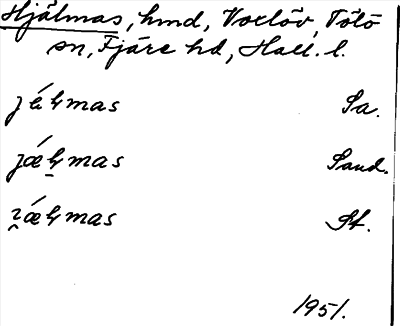 Hjälmas, hmd, Voxlöv, Tölö
sn, Fjäre hd, Hall. l.
mas Sa.
mas Sand.
mas St.
1951.